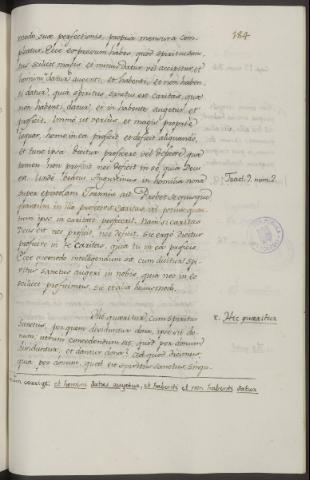 184
modo suæ perfectionis, propria mensura com-
pletur. Ecce expressum habes, quod spiritus sanc-
tus scilicet magis et minus datur vel accipitur, et
homini datus augetur, et habenti, et non haben-
ti datur, quia spiritus sanctus est caritas, quæ
non habenti datur, et in habente augetur et
proficit. Immo ut verius, et magis proprie
loquar, homo in ea proficit et deficit aliquando,
et tunc ipsa dicitur proficere vel deficere, quæ
tamen non proficit nec deficit in se, quia Deus
est. Unde beatus Augustinus in homilia nona
super epistolam Joannis ait. Probet se quisque
quantum in illo profecerit caritas, vel potius quan-
tum ipse in caritate profecerit. Nam si caritas
Deus est, nec proficit, nec deficit. Sic ergo dicitur
proficere in te caritas, quia tu in ea proficis.
Ecce quomodo intelligendum sit cum dicitur spi-
ritus sanctus augeri in nobis, quia nos in eo
scilicet proficimus, et alia hujusmodi.
Tract. 9. num. 2.
Hic quæritur, cum spiritus
sanctus, per quem dividuntur dona, ipse sit do-
num, utrum concedendum sit, quod per donum
dividuntur, et dantur dona? Ad quod dicimus,
quia per donum, quod est spiritus sanctus, singu-
2. Hic quæritur
corrigit: et homini datus augetur, et habenti et non habenti datur